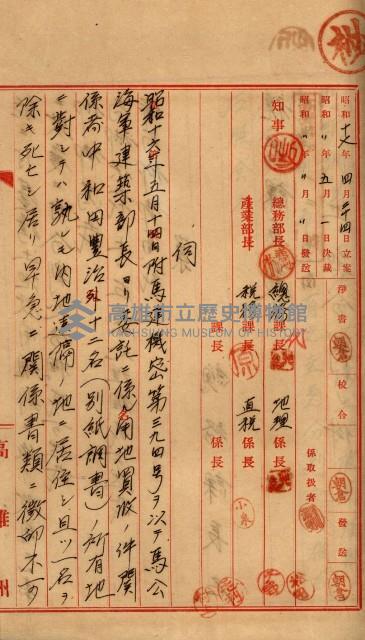 昭和十七年四月三十四日立案
昭和〃年五月一日決裁
昭和〃年〃月〃日發送
淨書
校合
發送
朝倉
朝倉
係取扱者
知事
總務部長
總務課長
地理係長
產業部長
稅務課長
直稅係長
課長
係長
伺
昭和十六年五月十四日附馬機密第三九四號ヲ以テ馬公
海軍建築部長ヨリ委託ニ係ル用地買收ノ件關
係者中和田豐治外二名(別紙調書)ノ所有地
ニ對シテハ孰レモ內地遠隔ノ地ニ居住シ且ツ一名ヲ
除キ死亡シ居リ早急ニ關係書類ニ徵印不可
高雄州
高雄市立歷史博物館
KAOHSIUNG MUSEUM OF HISTORY